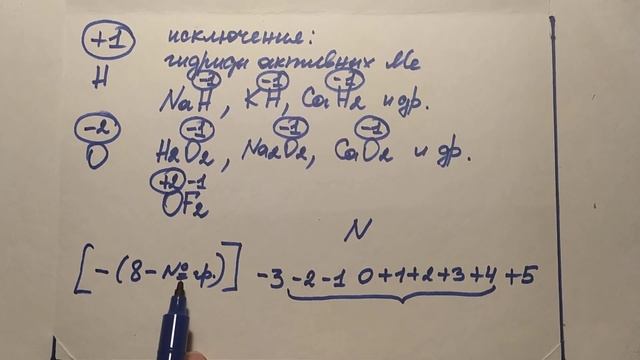 +1 исключения:
H гидриды активных Me
-1 -1 -1
NaH, KH, CaH2 и др.
-2 -1 -1 -1
O H2O2, Na2O2, CaO2 и др.
+2 -1
OF2
N
[-(8-№ гр.)] -3 -2 -1 0 +1 +2 +3 +4 +5